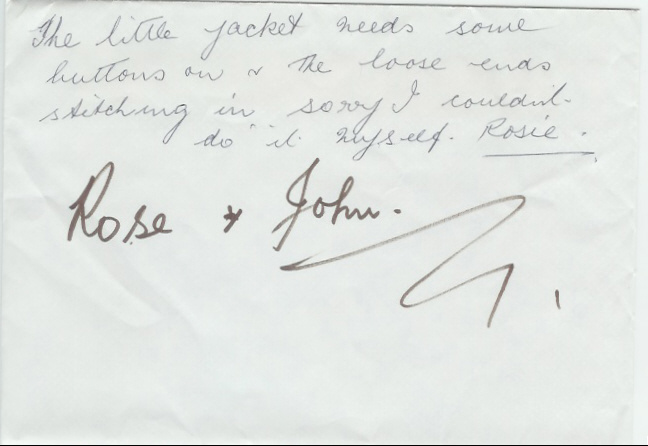 The little jacket needs some
buttons on & the loose ends
stitching in sorry I couldn't
do it myself. Rosie.
Rose & John.